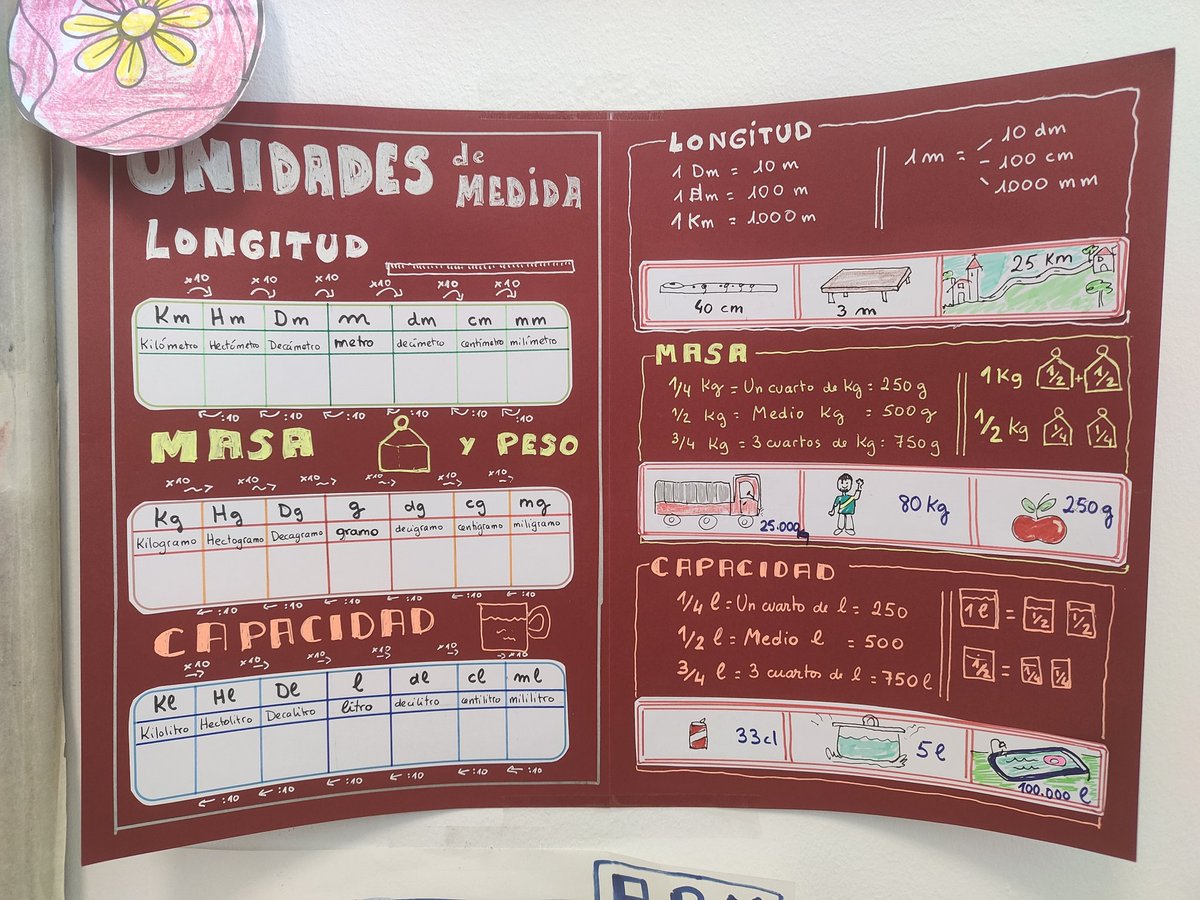 UNIDADES de MEDIDA
LONGITUD
x10 x10 x10 x10 x10 x10
Km Hm Dm m dm cm mm
Kilómetro Hectómetro Decámetro metro decímetro centímetro milímetro
:10 :10 :10 :10 :10 :10
MASA Y PESO
x10 x10 x10 x10 x10 x10
Kg Hg Dg g dg cg mg
Kilogramo Hectogramo Decagramo gramo decigramo centigramo miligramo
:10 :10 :10 :10 :10 :10
CAPACIDAD
x10 x10 x10 x10 x10 x10
Kl Hl Dl l dl cl ml
Kilolitro Hectolitro Decalitro litro decilitro centilitro mililitro
:10 :10 :10 :10 :10 :10
LONGITUD
1 Dm = 10 m
1 Hm = 100 m
1 Km = 1.000 m
1 m = 10 dm
100 cm
1000 mm
40 cm 3 m 25 Km
MASA
1/4 Kg = Un cuarto de Kg = 250 g
1/2 Kg = Medio Kg = 500 g
3/4 Kg = 3 cuartos de Kg = 750 g
1 Kg 1/2 + 1/2
1/2 Kg 1/4 1/4
25.000 Kg 80 Kg 250 g
CAPACIDAD
1/4 l = Un cuarto de l = 250
1/2 l = Medio l = 500
3/4 l = 3 cuartos de l = 750 l
1 l = 1/2 1/2
1/2 = 1/4 1/4
33 cl 5 l 100.000 l